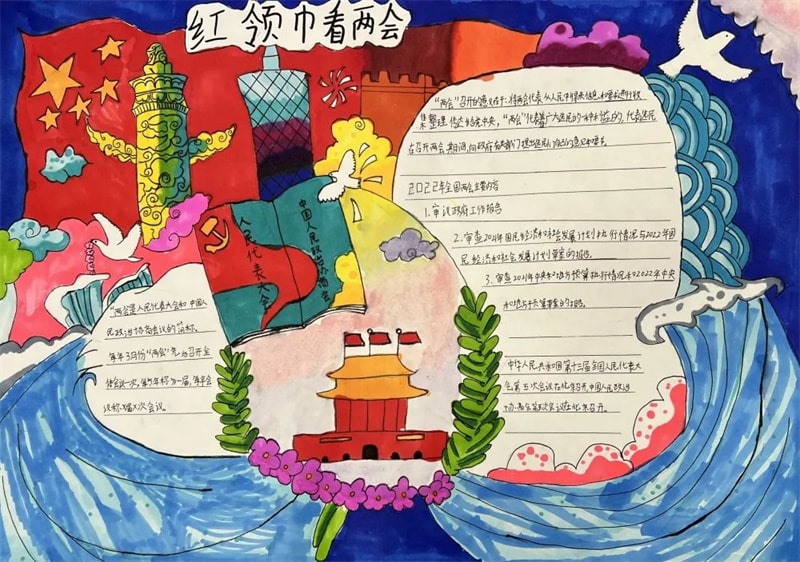 红领巾看两会
人民代表大会
中国人民政治协商会
"两会"是人民代表大会和中国人
民政治协商会议的简称.
每年3月份"两会"先后召开全
体会议一次,每5年称为一届,每年会
议称X届X次会议。
"两会"召开的意义在于:将两会代表从人民中得来信息和要求进行收
集整理,传达给党中央,"两会"代表着广大选民的一种利益的,代表选民
在召开两会期间,向政府有关部门提出选民们自己的意见和要求
2022年全国两会主要内容
1.审议政府工作报告
2.审查2021年国民经济和社会发展计划执行情况与2022年国
民经济和社会发展计划草案的报告.
3.审查2021年中央和地方预算执行情况和2022年中央
和地方预算草案的报告.
中华人民共和国第十三届全国人民代表大
会第五次会议在北京召开.中国人民政治
会第五次会议在北京召开.